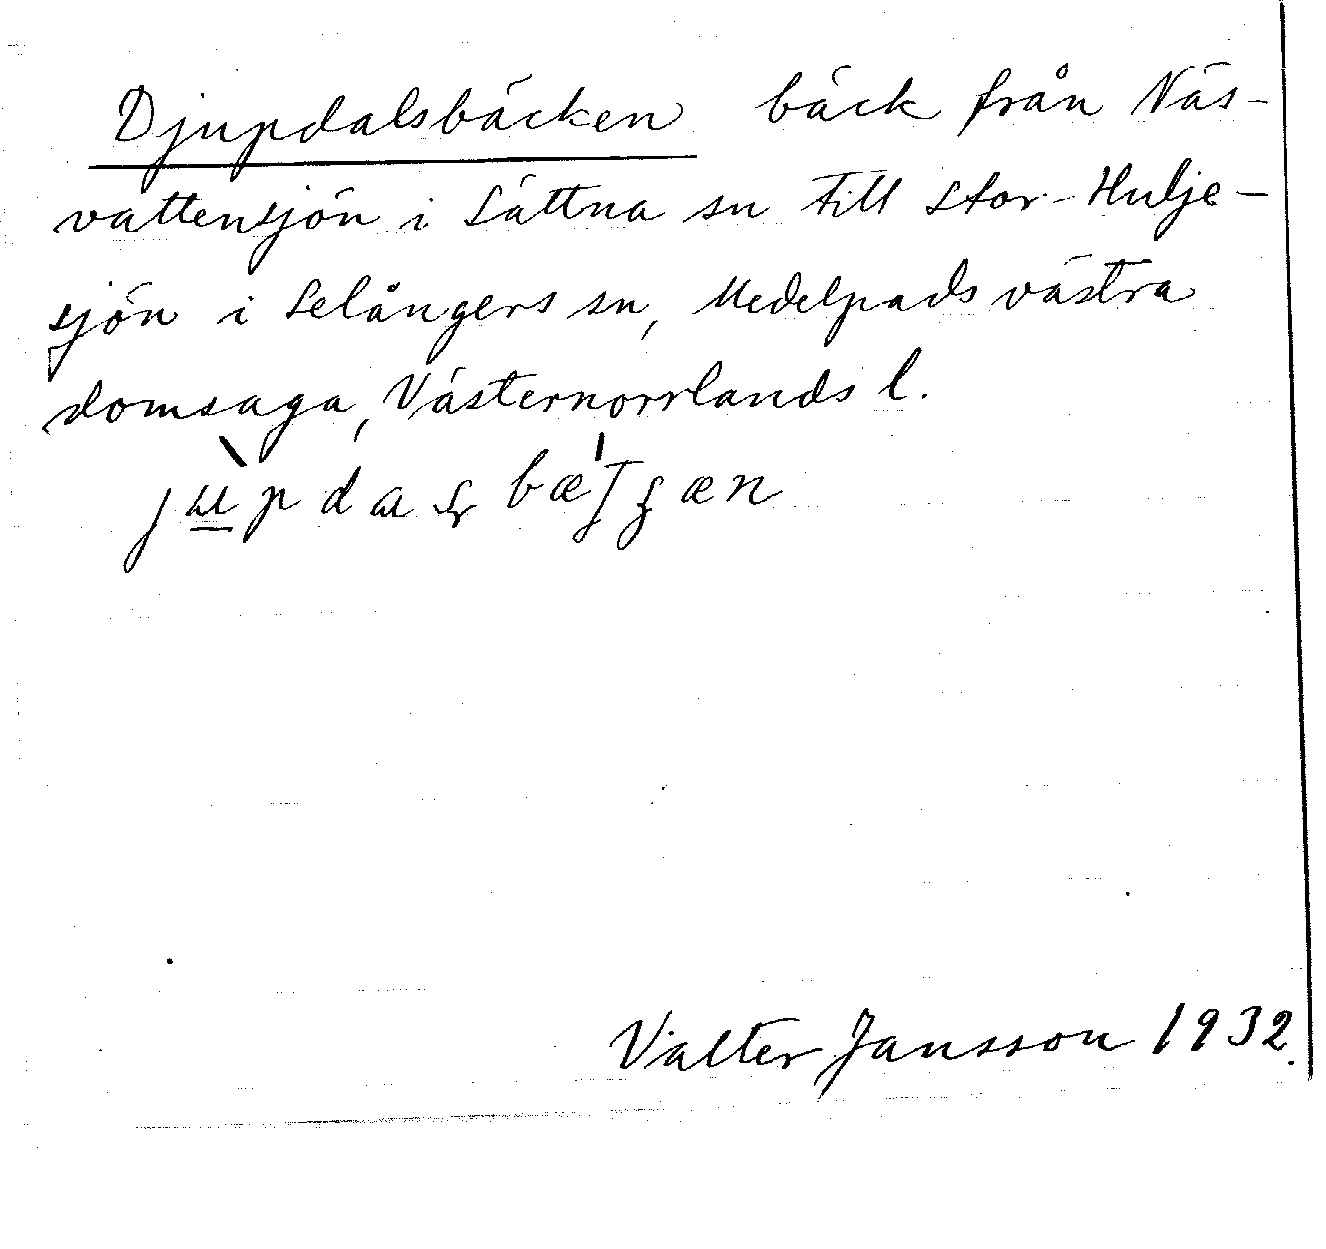 Djupdalsbäcken bäck från Näs-
vattensjön i Sättna sn till Stor-Hulje-
sjön i Selångers sn, Medelpads västra
domsaga, Västernorrlands l.
Valter Jansson 1932.